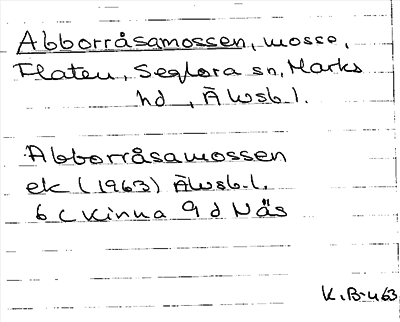 Abborråsamossen, mosse,
Flaten, Seglora sn, Marks
hd, Älvsb. l.
Abborråsamossen
ek (1963) Älvsb. l.
6 c Kinna 9 d Näs
K. B-u 63